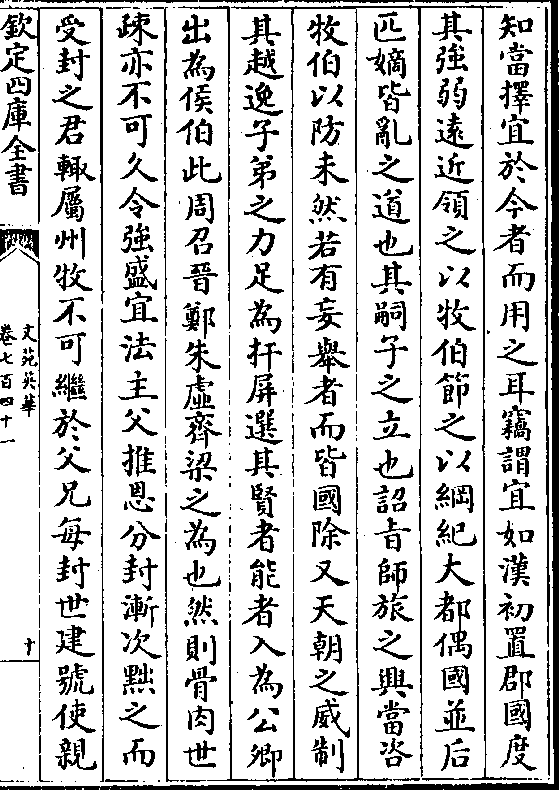 知當擇宜於今者而用之耳竊謂宜如漢初置郡國度
其強弱遠近領之以牧伯節之以綱紀大都偶國並后
匹嫡皆亂之道也其嗣子之立也詔旨師旅之興當咨
牧伯以防未然若有妄舉者而皆國除又天朝之威制
其越逸子弟之力足為扞屏選其賢者能者入為公卿
出為侯伯此周召晉鄭朱虛齊梁之為也然則骨肉世
疎亦不可久令強盛宜法主父推恩分封漸次黜之而
受封之君輙屬州牧不可繼於父兄每封世建號使親
欽定四庫全書
文苑英華
卷七百四十一
十